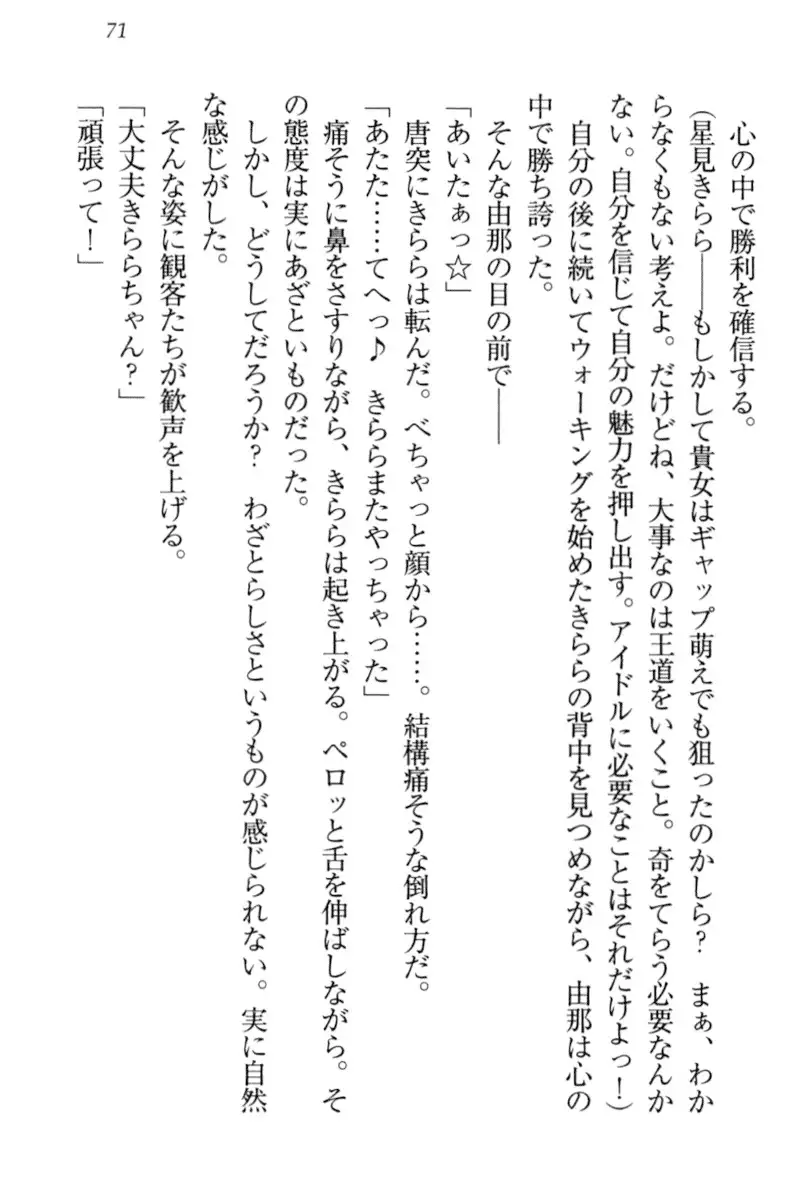 71
心の中で勝利を確信する。
(星見きらら――もしかして貴女はギャップ萌えでも狙ったのかしら?　まぁ、わか
らなくもない考えよ。だけどね、大事なのは王道をいくこと。奇をてらう必要なんか
ない。自分を信じて自分の魅力を押し出す。アイドルに必要なことはそれだけよっ!)
自分の後に続いてウォーキングを始めたきららの背中を見つめながら、由那は心の
中で勝ち誇った。
そんな由那の目の前で――
「あいたぁっ☆」
唐突にきららは転んだ。べちゃっと顔から……。結構痛そうな倒れ方だ。
「あたた……てへっ♪　きららまたやっちゃった」
痛そうに鼻をさすりながら、きららは起き上がる。ペロッと舌を伸ばしながら。そ
の態度は実にあざといものだった。
しかし、どうしてだろうか?　わざとらしさというものが感じられない。実に自然
な感じがした。
そんな姿に観客たちが歓声を上げる。
「大丈夫きららちゃん?」
「頑張って!」